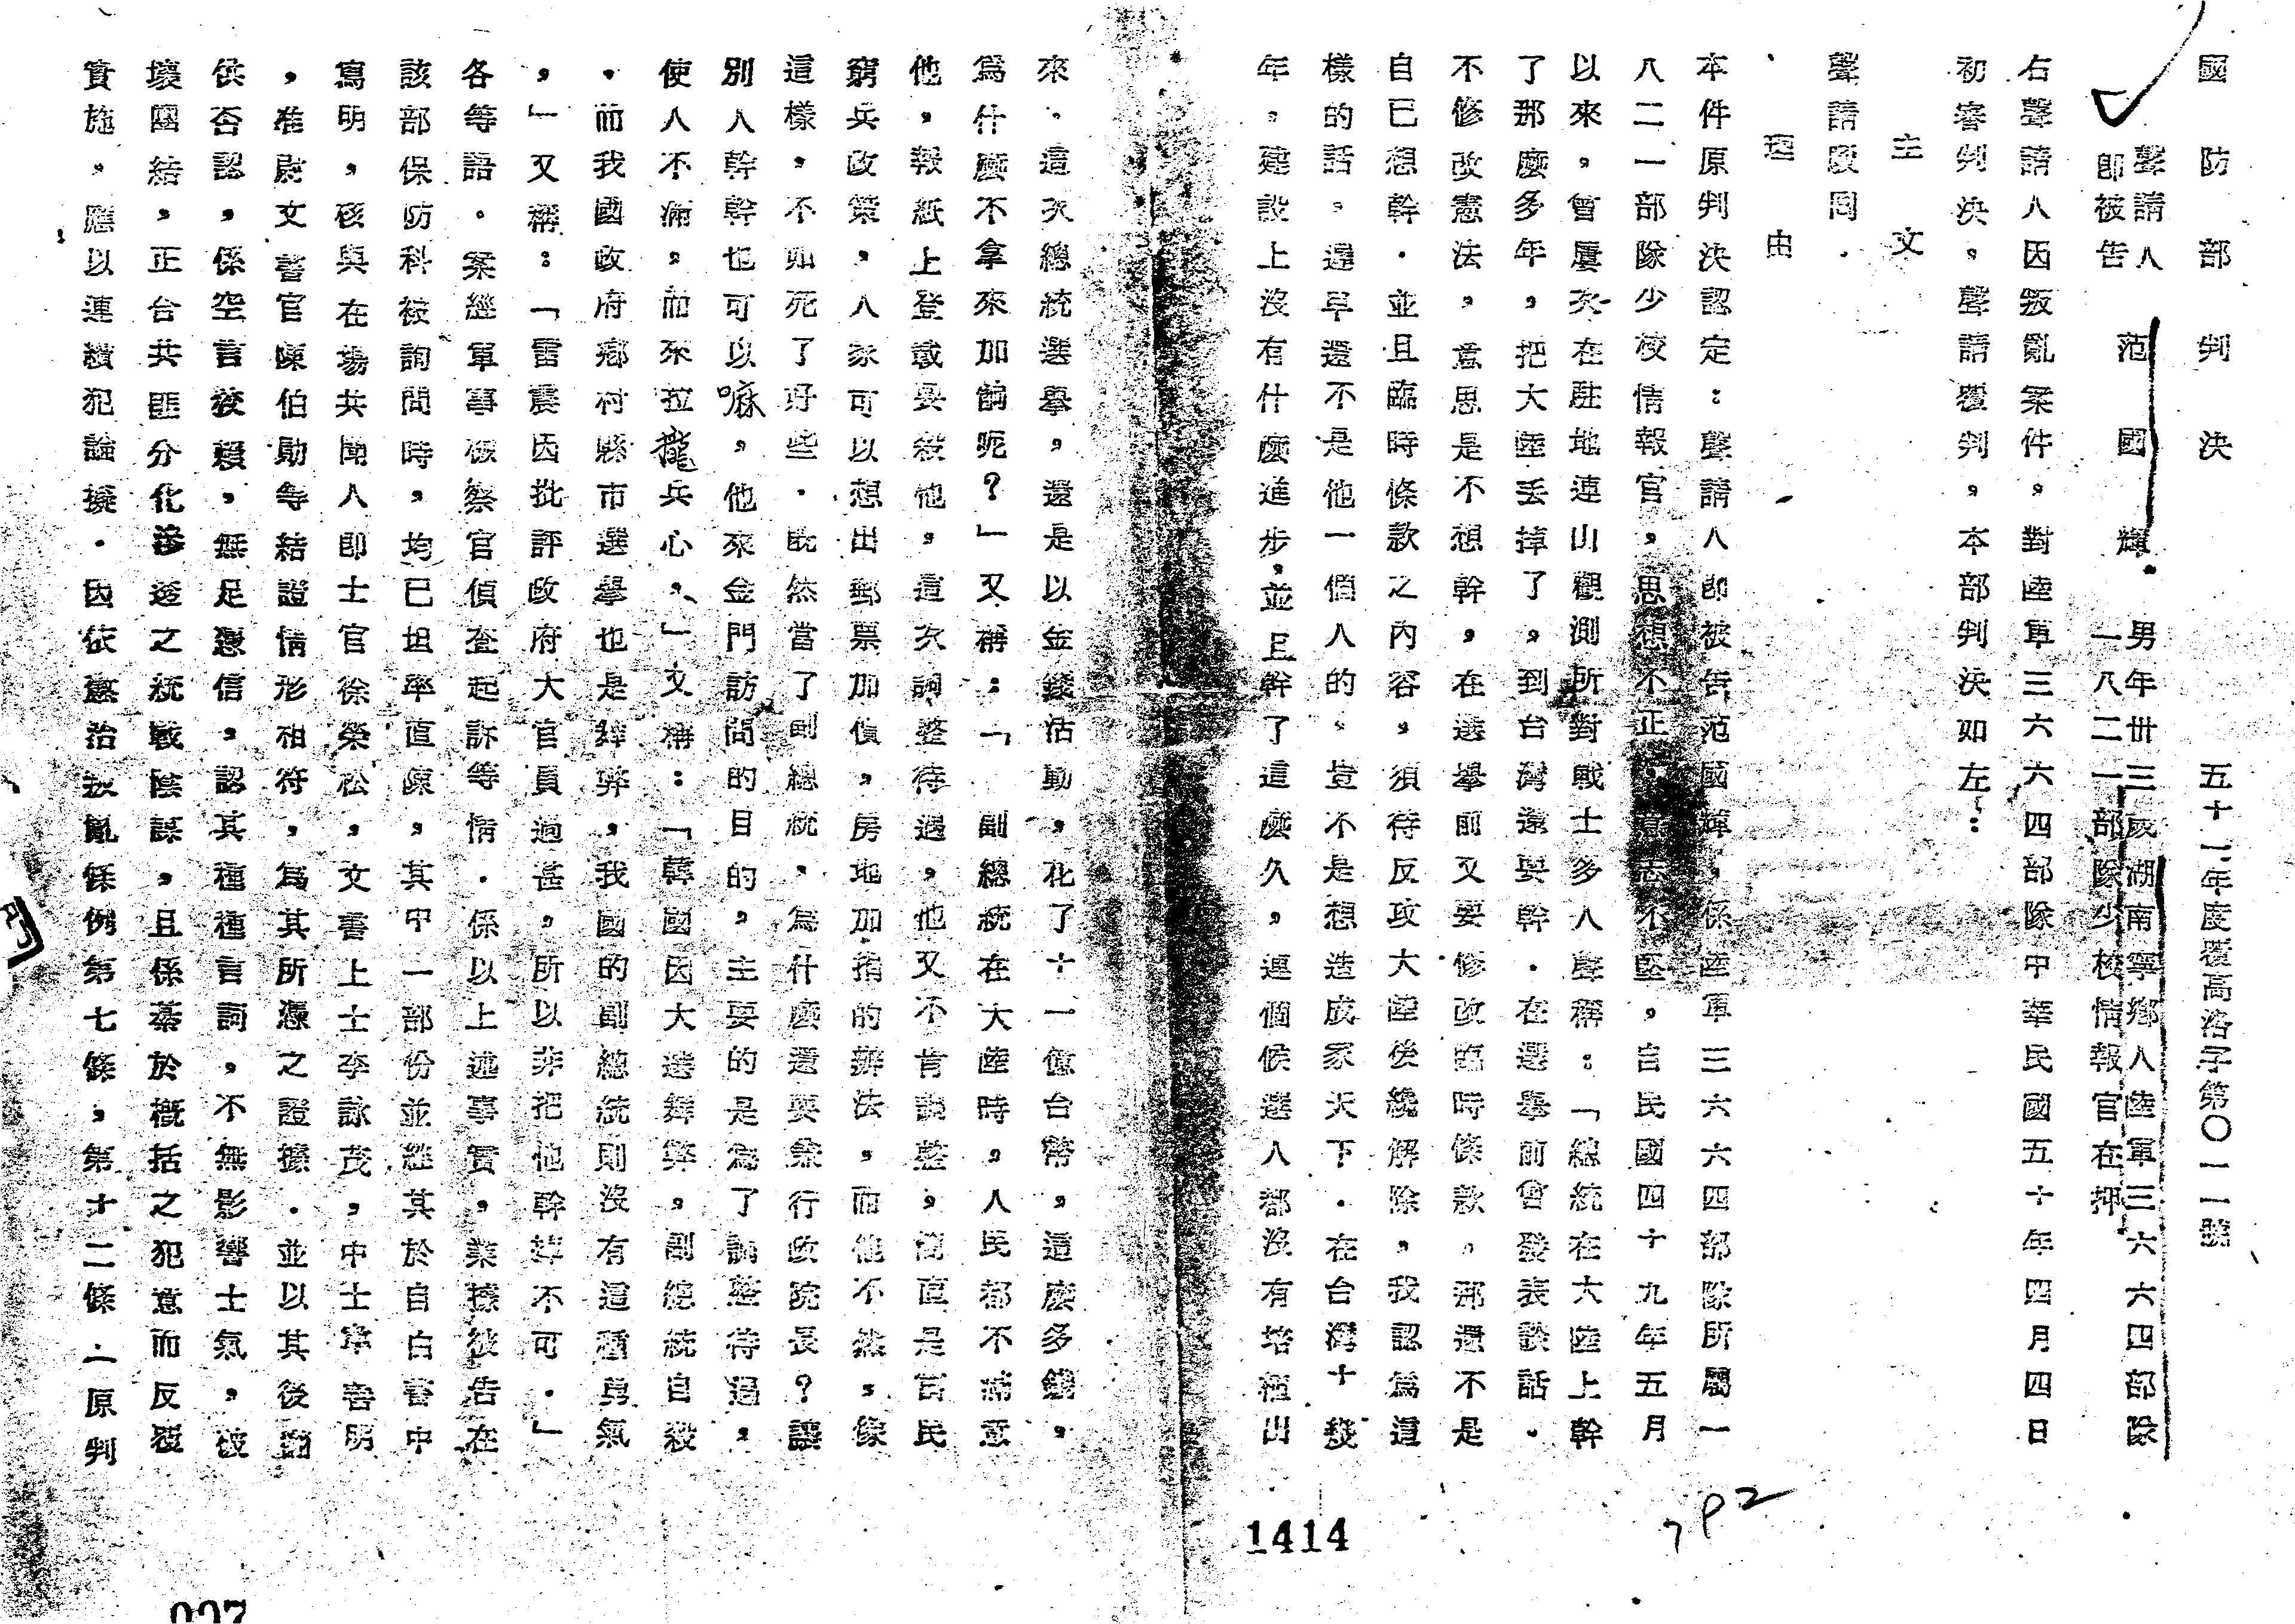 國防部判決　五十一年度覆高洛字第〇一一號
聲請人
即被告　范國輝　男年卅三歲湖南寧鄉人陸軍三六六四部隊
一八二一部隊少校情報官在押
右聲請人因叛亂案件，對陸軍三六六四部隊中華民國五十年四月四日
初審判決，聲請覆判，本部判決如左：
主文
聲請駁回．
理由
本件原判決認定：聲請人即被告范國輝，係陸軍三六六四部隊所屬一
八二一部隊少校情報官，思想不正，意志不堅，自民國四十九年五月
以來，曾屢次在駐地連山觀測所對戰士多人聲稱：「總統在大陸上幹
了那麼多年，把大陸丟掉了，到台灣還要幹．在選舉前曾發表談話．
不修改憲法，意思是不想幹，在選舉前又要修改臨時條款。那還不是
自己想幹．並且臨時條款之內容，須待反攻大陸後纔解除，我認為這
樣的話。還早還不是他一個人的。豈不是想造成家天下．在台灣十幾
年。建設上沒有什麼進步，並且幹了這麼久，連個候選人都沒有培植出
來．這次總統選舉，還是以金錢活動，花了十一億台幣，這麼多錢，
為什麼不拿來加餉呢？」又稱：「副總統在大陸時，人民都不滿意
他，報紙上登載要殺他，這次調整待遇，他又不肯調整，簡直是官民
窮兵政策，人家可以想出郵票加價，房地加捐的辦法，而他不然，像
這樣，不如死了好些．既然當了副總統，為什麼還要兼行政院長？讓
別人幹幹也可以嘛，他來金門訪問的目的，主要的是為了調整待遇，
使人不痛，而來拉攏兵心，」文稱：「韓國因大選舞弊，副總統自殺
．而我國政府鄉村縣市選舉也是舞弊，我國的副總統則沒有這種勇氣
，」又稱：「雷震因批評政府大官員過甚，所以非把他幹掉不可．」
各等語．案經軍事檢察官偵查起訴等情．係以上述事實，業據被告在
該部保防科被詢問時，均已坦率直陳，其中一部份並經其於自白書中
寫明，核與在場共聞人即士官徐榮松，文書上士李詠茂，中士寧善明
，准尉文書官陳伯勛等結證情形相符，為其所憑之證據．並以其後翻
供否認，係空言狡賴，無足憑信，認其種種言詞，不無影響士氣，破
壞團結，正台共匪分化滲透之統戰陰謀，且係基於概括之犯意而反覆
實施，應以連續犯論擬．因依懲治叛亂條例第七條，第十二條．原判
1414
7P2
007